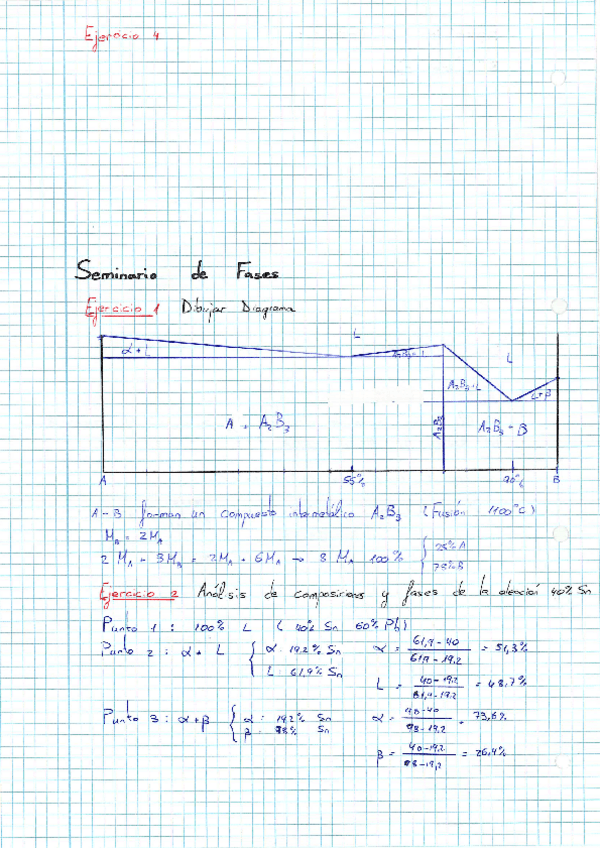 Ejercicio 4
Seminario de Fases
Ejercicio 1 Dibujar Diagrama
L
α+L
L
A₂B₃+L
L+β
A + A₂B₃
A₂B₃
A₂B₃ - B
A 55% 90% B
A-B forman un compuesto intermetálico A₂B₃ (Fusión 1100°C)
M_B = 2M_A
2 M_A - 3M_B = 2M_A + 6M_A → 8 M_A 100% { 25% A
75% B
Ejercicio 2 Análisis de composiciones y fases de la aleación 40% Sn
Punto 1 : 100% L ( 40% Sn 60% Pb)
Punto 2 : α + L { α : 19.2% Sn α = 61,9-40 / 61,9-19,2 = 51,3%
L : 61,9% Sn
L = 40-19,2 / 61,9-19,2 = 48,7%
Punto 3 : α+β { α : 19,2% Sn α = 98-40 / 98-19,2 = 73,6%
β : 98% Sn
β = 40-19,2 / 98-19,2 = 26,4%